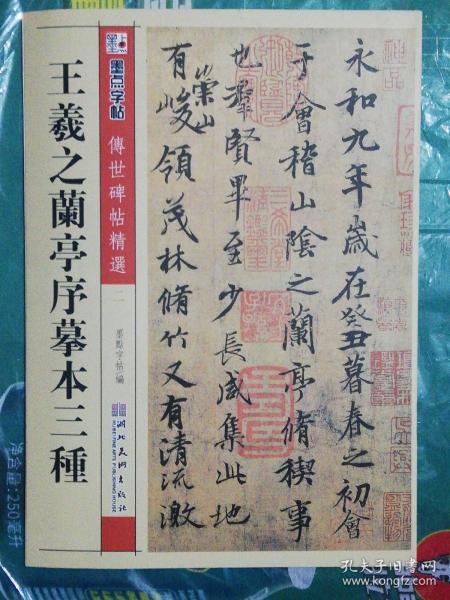 王羲之蘭亭序摹本三種
墨点
墨点字帖
傳世碑帖精選
二
墨點字帖/編
湖北美術出版社
HUBEI FINE ARTS PUBLISHING HOUSE
永和九年歲在癸丑暮春之初會
于會稽山陰之蘭亭脩稧事
也羣賢畢至少長咸集此地
有崇山峻領茂林脩竹又有清流激
净含量:250毫升
孔夫子旧书网
www.kongfz.com